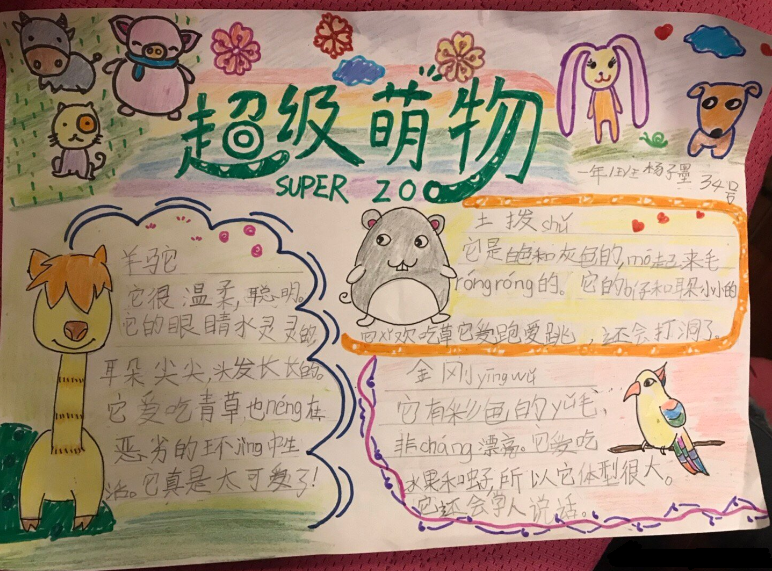 超级萌物
SUPER ZOO
一年 杨子墨 34号
羊驼
它很温柔,聪明。
它的眼睛水灵灵的,
耳朵尖尖,头发长长的。
它爱吃青草也néng在
恶劣的环jìng中生
活。它真是太可爱了!
土拨shǔ
它是白色和灰色的,mō起来毛
róngróng的。它的 和耳朵小小的
喜欢吃草它爱跑爱跳,还会打洞了。
金刚yīngwǔ
它有彩色的yǔ毛,
非cháng漂亮。它爱吃
水果和 所以它体型很大。
它还会学人说话。